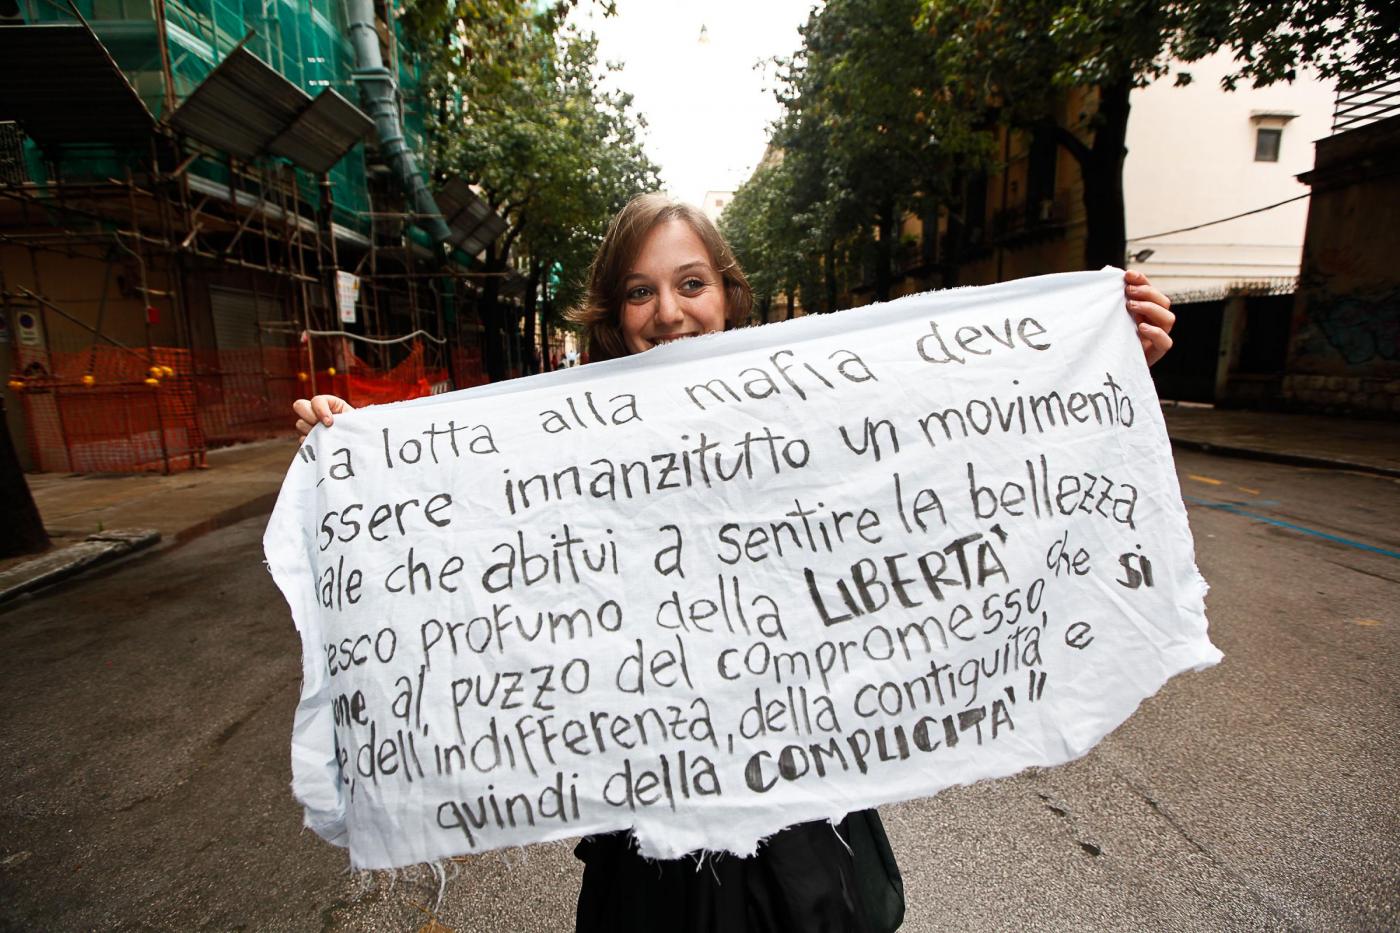 "La lotta alla mafia deve
essere innanzitutto un movimento
rale che abitui a sentire la bellezza
esco profumo della LIBERTÀ che si
one al puzzo del compromesso,
e, dell'indifferenza, della contiguità e
quindi della COMPLICITÀ"